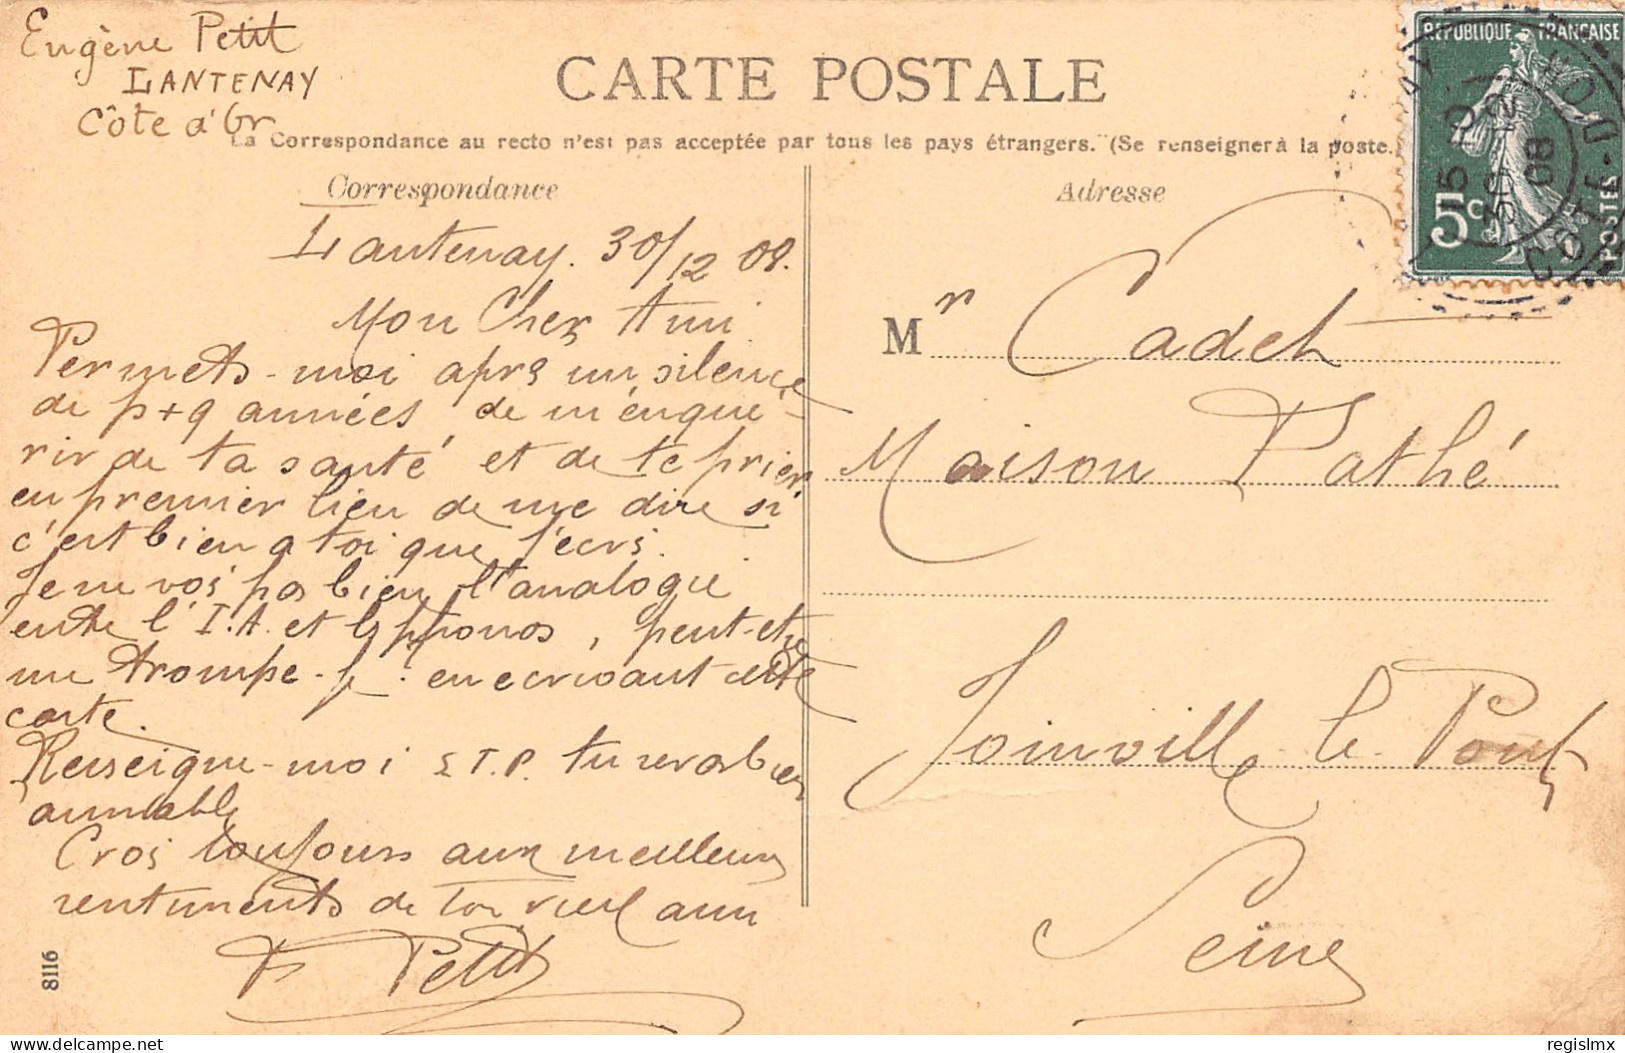 Eugène Petit
LANTENAY
Côte d'Or
CARTE POSTALE
La Correspondance au recto n'est pas acceptée par tous les pays étrangers. (Se renseigner à la poste.
Correspondance
Lantenay. 30/12 08.
Mon Cher Ami
Permets-moi aprs un silence
de p+q années de m'enqué-
rir de ta santé et de te prier
en premier lieu de me dire si
c'est bien a toi que j'ecris.
Je ne vois pas bien l'analogie
entre l'I.A. et les phonos, peut-etre
me trompe-je : en ecrivant cette
carte.
Renseigne-moi S.T.P. tu seras bien
aimable
Crois toujours aux meilleurs
sentiments de ton vieil ami
E Petit
8116
Adresse
Mr Cadet
Maison Pathé
Joinville-le-Pont
Seine
REPUBLIQUE FRANÇAISE
5c
POSTES
15
30 12
08
CÔTE-D'OR
regislmx